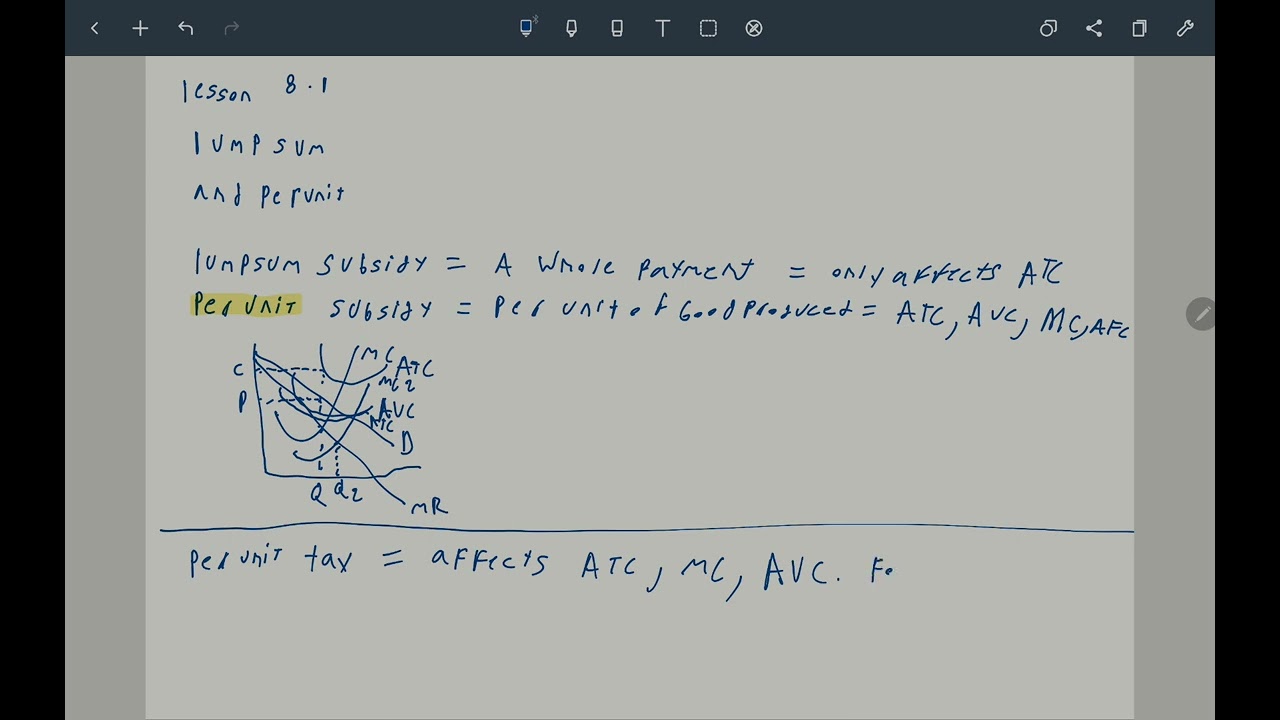 lesson 8.1
lumpsum
and perunit
lumpsum subsidy = A whole payment = only affects ATC
Per unit subsidy = Per unit of Good produced = ATC, AVC, MC, AFC
MC
C
ATC
MC2
P
AVC
ATC
D
Q Q2
MR
per unit tax = affects ATC, MC, AVC. Fo